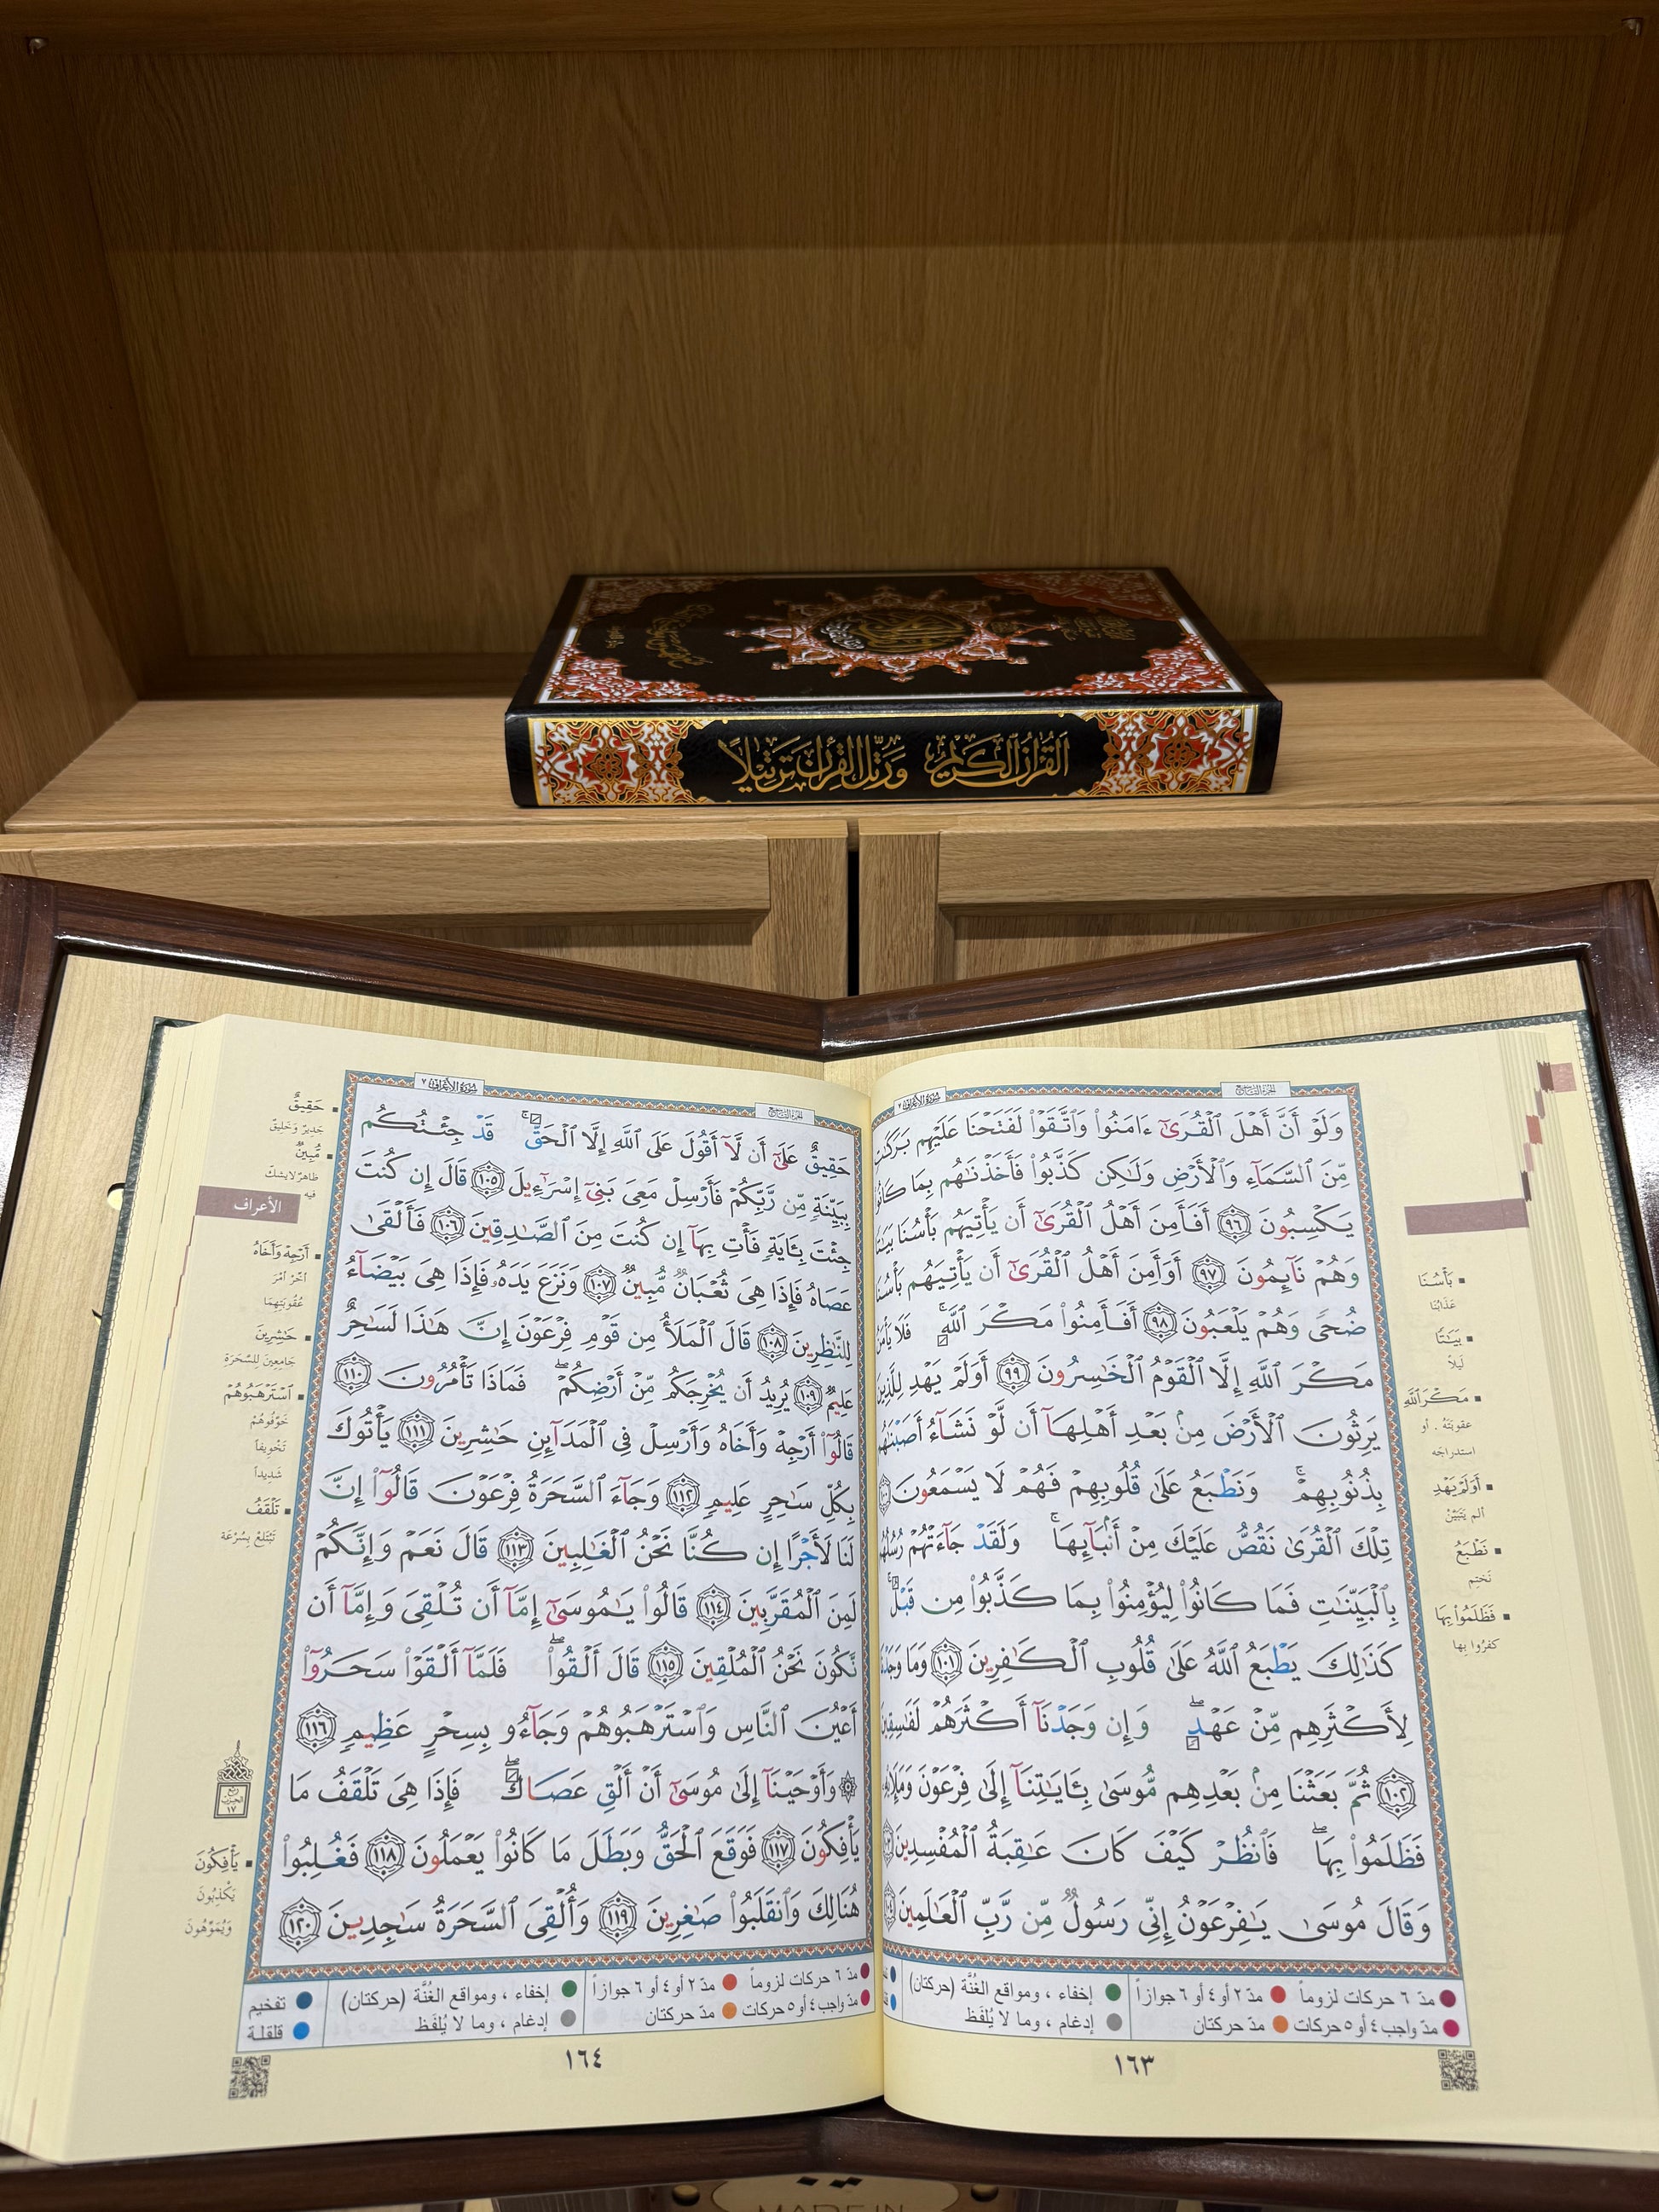 القرآن الكريم ورتل القرآن ترتيلا
سورة الأعراف ٧
الجزء التاسع
وَلَوْ أَنَّ أَهْلَ ٱلْقُرَىٰٓ ءَامَنُوا۟ وَٱتَّقَوْا۟ لَفَتَحْنَا عَلَيْهِم بَرَكَٰتٍ
مِّنَ ٱلسَّمَآءِ وَٱلْأَرْضِ وَلَٰكِن كَذَّبُوا۟ فَأَخَذْنَٰهُم بِمَا كَانُوا۟
يَكْسِبُونَ ٩٦ أَفَأَمِنَ أَهْلُ ٱلْقُرَىٰٓ أَن يَأْتِيَهُم بَأْسُنَا بَيَٰتًا
وَهُمْ نَآئِمُونَ ٩٧ أَوَأَمِنَ أَهْلُ ٱلْقُرَىٰٓ أَن يَأْتِيَهُم بَأْسُنَا
ضُحًى وَهُمْ يَلْعَبُونَ ٩٨ أَفَأَمِنُوا۟ مَكْرَ ٱللَّهِ ۚ فَلَا يَأْمَنُ
مَكْرَ ٱللَّهِ إِلَّا ٱلْقَوْمُ ٱلْخَٰسِرُونَ ٩٩ أَوَلَمْ يَهْدِ لِلَّذِينَ
يَرِثُونَ ٱلْأَرْضَ مِنۢ بَعْدِ أَهْلِهَآ أَن لَّوْ نَشَآءُ أَصَبْنَٰهُم
بِذُنُوبِهِمْ ۚ وَنَطْبَعُ عَلَىٰ قُلُوبِهِمْ فَهُمْ لَا يَسْمَعُونَ
تِلْكَ ٱلْقُرَىٰ نَقُصُّ عَلَيْكَ مِنْ أَنۢبَآئِهَا ۚ وَلَقَدْ جَآءَتْهُمْ رُسُلُهُم
بِٱلْبَيِّنَٰتِ فَمَا كَانُوا۟ لِيُؤْمِنُوا۟ بِمَا كَذَّبُوا۟ مِن قَبْلُ ۚ
كَذَٰلِكَ يَطْبَعُ ٱللَّهُ عَلَىٰ قُلُوبِ ٱلْكَٰفِرِينَ ١٠١ وَمَا وَجَدْنَا
لِأَكْثَرِهِم مِّنْ عَهْدٍ ۖ وَإِن وَجَدْنَآ أَكْثَرَهُمْ لَفَٰسِقِينَ
١٠٢ ثُمَّ بَعَثْنَا مِنۢ بَعْدِهِم مُّوسَىٰ بِـَٔايَٰتِنَآ إِلَىٰ فِرْعَوْنَ وَمَلَإِي۟هِۦ
فَظَلَمُوا۟ بِهَا ۖ فَٱنظُرْ كَيْفَ كَانَ عَٰقِبَةُ ٱلْمُفْسِدِينَ
وَقَالَ مُوسَىٰ يَٰفِرْعَوْنُ إِنِّى رَسُولٌ مِّن رَّبِّ ٱلْعَٰلَمِينَ
بَأْسُنَا
عَذَابُنَا
بَيَٰتًا
لَيْلاً
مَكْرَ ٱللَّهِ
عقوبَتَهُ . أو
استدراجَه
أَوَلَمْ يَهْدِ
ألم يَتَبَيَّنْ
نَطْبَعُ
نَختِم
فَظَلَمُوا۟ بِهَا
كفرُوا بها
مدّ ٦ حركات لزوماً
مدّ ٢ أو ٤ أو ٦ جوازاً
إخفاء ، ومواقع الغُنَّة (حركتان)
مدّ واجب ٤ أو ٥ حركات
مدّ حركتان
إدغام ، وما لا يُلفَظ
١٦٣
الجزء التاسع
سورة الأعراف ٧
حَقِيقٌ عَلَىٰٓ أَن لَّآ أَقُولَ عَلَى ٱللَّهِ إِلَّا ٱلْحَقَّ ۚ قَدْ جِئْتُكُم
بِبَيِّنَةٍ مِّن رَّبِّكُمْ فَأَرْسِلْ مَعِىَ بَنِىٓ إِسْرَٰٓءِيلَ ١٠٥ قَالَ إِن كُنتَ
جِئْتَ بِـَٔايَةٍ فَأْتِ بِهَآ إِن كُنتَ مِنَ ٱلصَّٰدِقِينَ ١٠٦ فَأَلْقَىٰ
عَصَاهُ فَإِذَا هِىَ ثُعْبَانٌ مُّبِينٌ ١٠٧ وَنَزَعَ يَدَهُۥ فَإِذَا هِىَ بَيْضَآءُ
لِلنَّٰظِرِينَ ١٠٨ قَالَ ٱلْمَلَأُ مِن قَوْمِ فِرْعَوْنَ إِنَّ هَٰذَا لَسَٰحِرٌ
عَلِيمٌ ١٠٩ يُرِيدُ أَن يُخْرِجَكُم مِّنْ أَرْضِكُمْ ۖ فَمَاذَا تَأْمُرُونَ ١١٠
قَالُوٓا۟ أَرْجِهْ وَأَخَاهُ وَأَرْسِلْ فِى ٱلْمَدَآئِنِ حَٰشِرِينَ ١١١ يَأْتُوكَ
بِكُلِّ سَٰحِرٍ عَلِيمٍ ١١٢ وَجَآءَ ٱلسَّحَرَةُ فِرْعَوْنَ قَالُوٓا۟ إِنَّ
لَنَا لَأَجْرًا إِن كُنَّا نَحْنُ ٱلْغَٰلِبِينَ ١١٣ قَالَ نَعَمْ وَإِنَّكُمْ
لَمِنَ ٱلْمُقَرَّبِينَ ١١٤ قَالُوا۟ يَٰمُوسَىٰٓ إِمَّآ أَن تُلْقِىَ وَإِمَّآ أَن
نَّكُونَ نَحْنُ ٱلْمُلْقِينَ ١١٥ قَالَ أَلْقُوا۟ ۖ فَلَمَّآ أَلْقَوْا۟ سَحَرُوٓا۟
أَعْيُنَ ٱلنَّاسِ وَٱسْتَرْهَبُوهُمْ وَجَآءُو بِسِحْرٍ عَظِيمٍ ١١٦
۞ وَأَوْحَيْنَآ إِلَىٰ مُوسَىٰٓ أَنْ أَلْقِ عَصَاكَ ۖ فَإِذَا هِىَ تَلْقَفُ مَا
يَأْفِكُونَ ١١٧ فَوَقَعَ ٱلْحَقُّ وَبَطَلَ مَا كَانُوا۟ يَعْمَلُونَ ١١٨ فَغُلِبُوا۟
هُنَالِكَ وَٱنقَلَبُوا۟ صَٰغِرِينَ ١١٩ وَأُلْقِىَ ٱلسَّحَرَةُ سَٰجِدِينَ ١٢٠
حَقِيقٌ
جَدِيرٌ وَخَلِيقٌ
مُّبِينٌ
ظاهرٌ لا يشكّ
فيه
الأعراف
أَرْجِهْ وَأَخَاهُ
أَخِّرْ أَمْرَ
عُقُوبَتِهِمَا
حَٰشِرِينَ
جَامِعِينَ للسَّحَرَة
ٱسْتَرْهَبُوهُمْ
خَوَّفُوهُمْ
تَخْوِيفاً
شَدِيداً
تَلْقَفُ
تَبْتَلِعُ بِسُرْعَة
ربع
الحزب
١٧
يَأْفِكُونَ
يَكْذِبُونَ
وَيُمَوِّهُونَ
مدّ ٦ حركات لزوماً
مدّ ٢ أو ٤ أو ٦ جوازاً
إخفاء ، ومواقع الغُنَّة (حركتان)
تفخيم
مدّ واجب ٤ أو ٥ حركات
مدّ حركتان
إدغام ، وما لا يُلفَظ
قلقلة
١٦٤
MADE IN